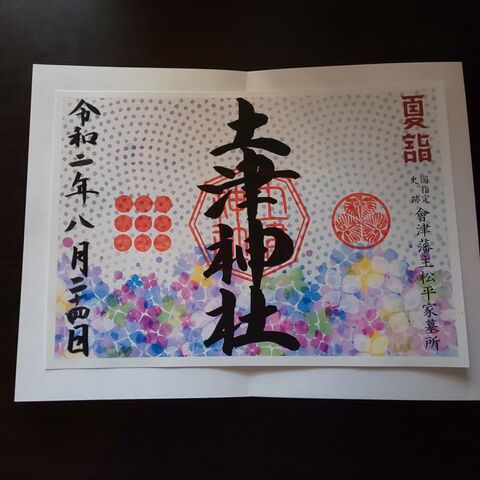 夏詣
国指定
史跡
會津藩主松平家墓所
土津神社
令和二年八月二十四日